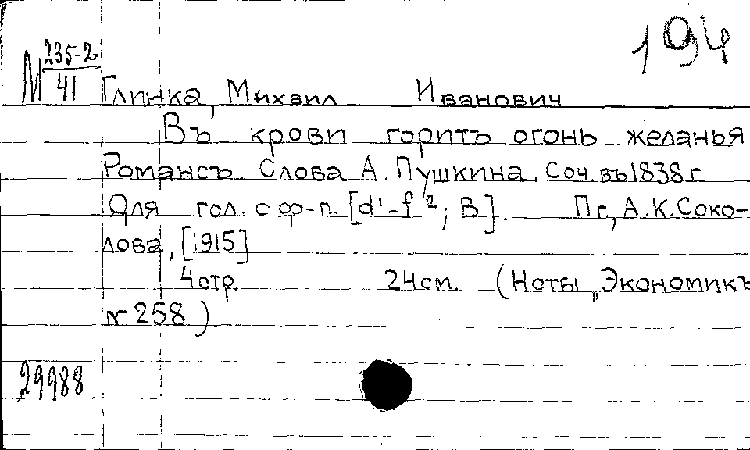 194
М 235-2
41
Глинка, Михаил Иванович
Въ крови горитъ огонь желанья
Романсъ. Слова А. Пушкина. Соч. въ 1838 г.
Для гол. с ф-п. [d¹-f²; B]. Пг., А.К. Соко-
лова, [1915]
4 стр. 24 см. (Ноты „Экономикъ
№ 258)
29988